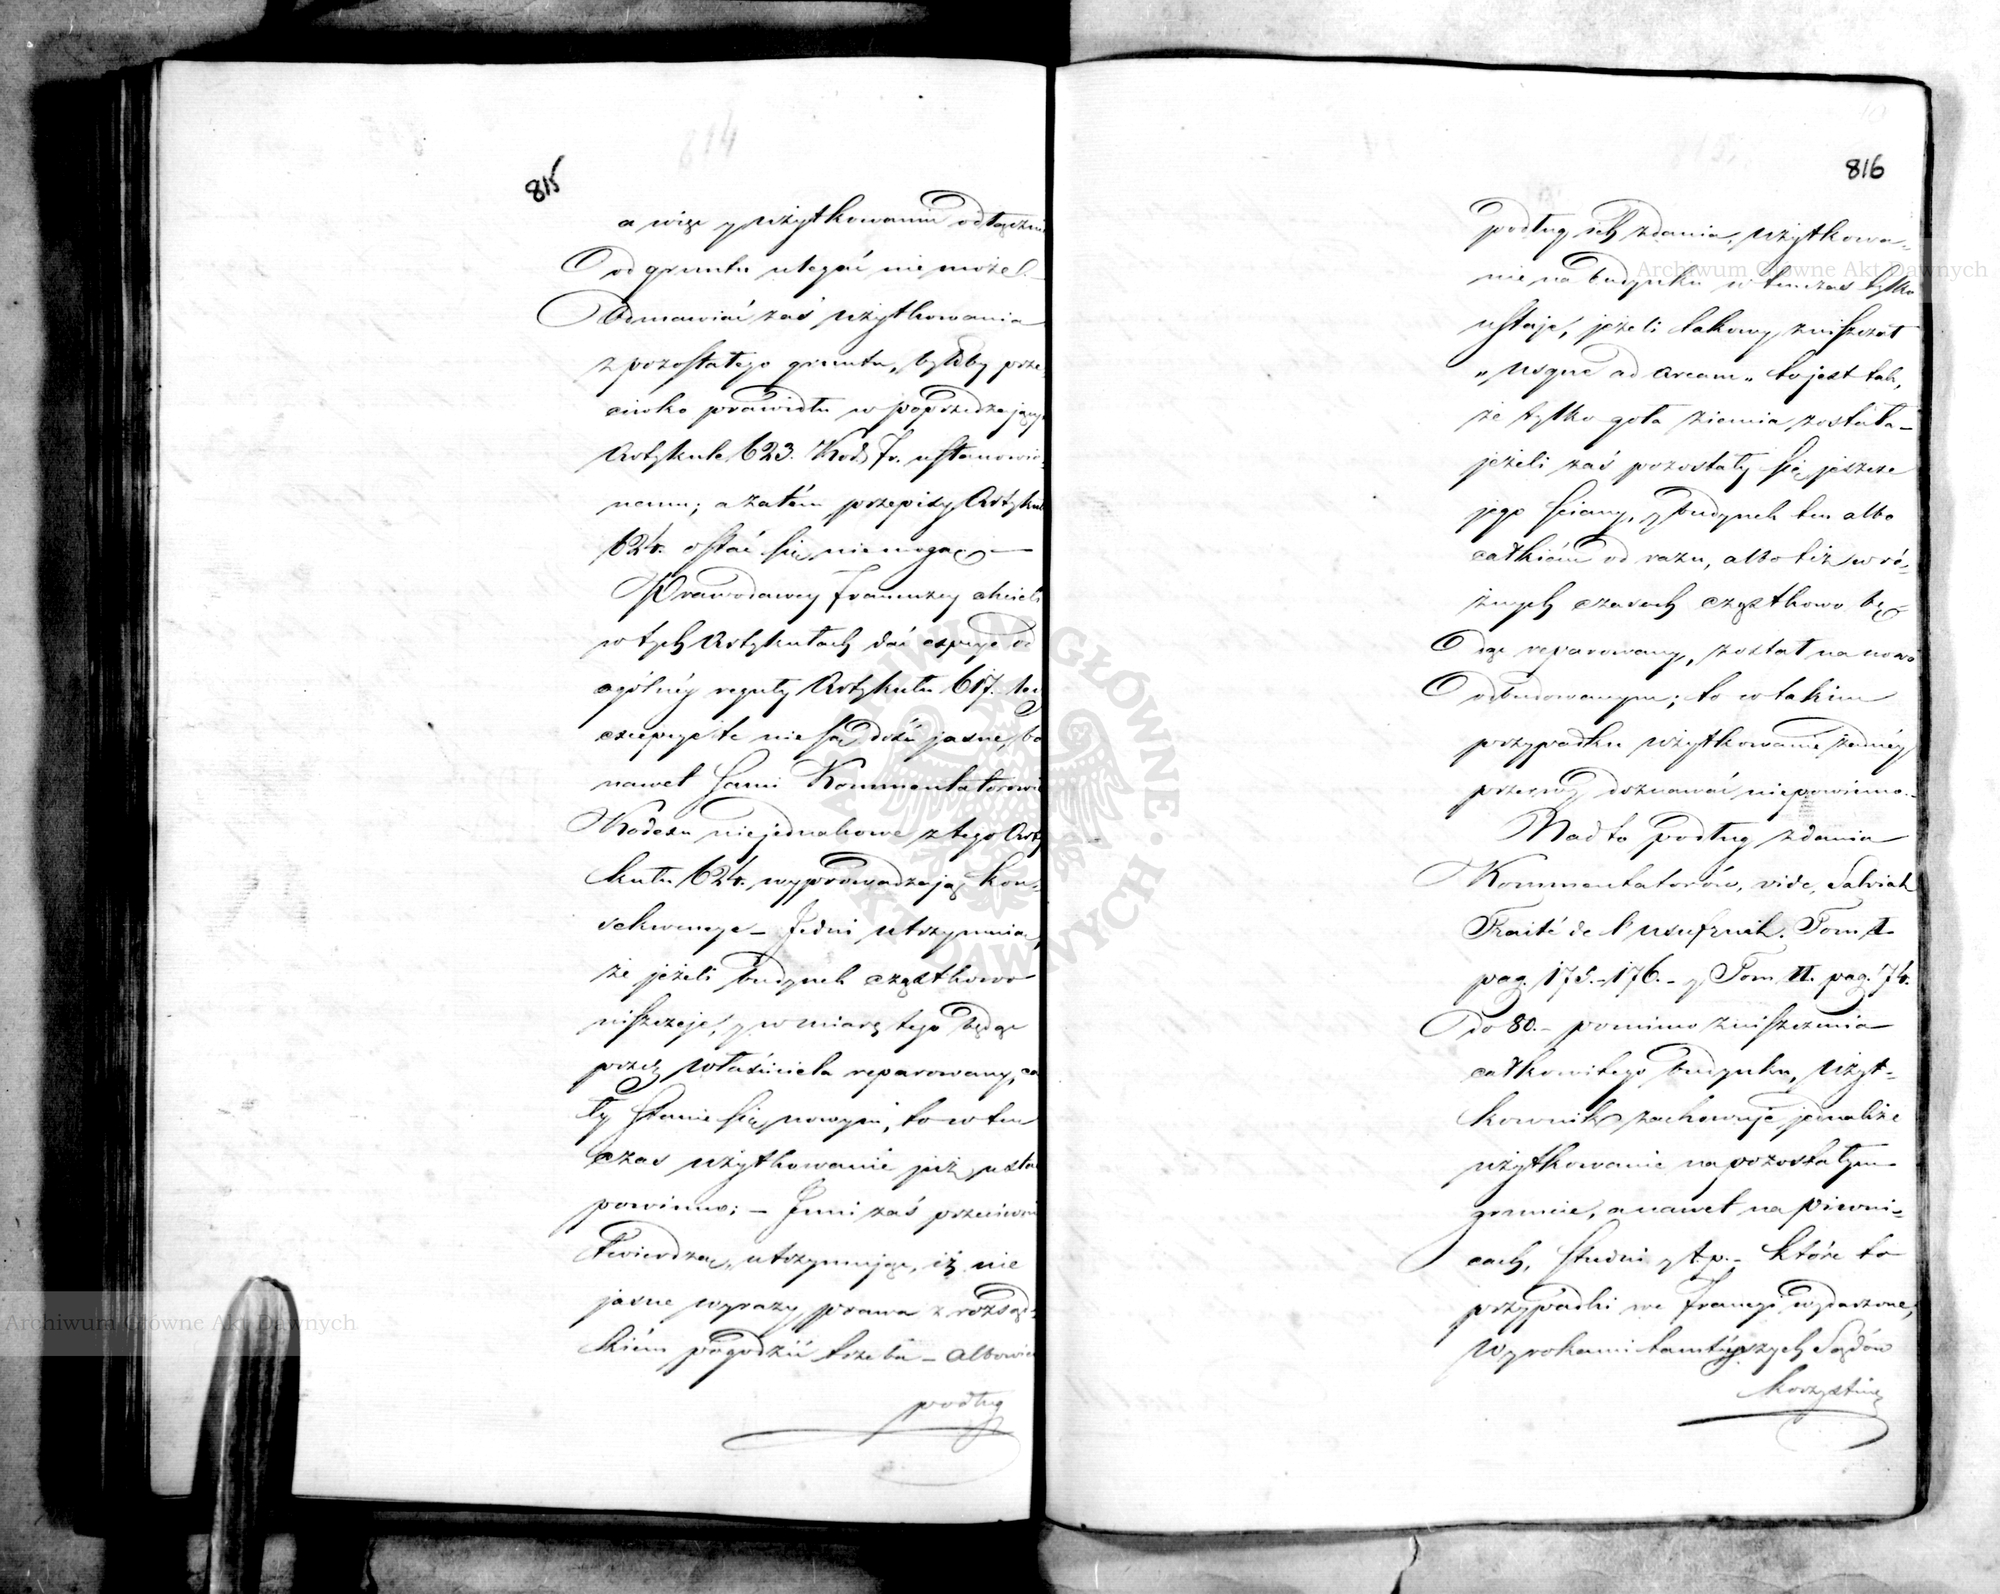 814
815
a więc y użytkowanie odłącznie
od gruntu ulegać nie może.
Odmawiać zaś użytkowania
z pozostałego gruntu, byłoby prze-
ciwko prawidłu w poprzedzającym
Artykule 623. Kod. Fr. ustanowio-
nemu; a zatém przepisy Artykułu
624. ostać się nie mogą.
Prawodawcy Francuzcy chcieli
w tych Artykułach dać od
ogólnéj reguły Artykułu 617. lecz
te nie są dość jasne, bo
nawet sami Kommentatorowie
Kodexu niejednakowe z tego Arty-
kułu 624. wyprowadzają kon-
sekwencye – Jedni utrzymują,
że jeżeli budynek cząstkowo
niszczeje, y w miarę tego będąc
przez właściciela reparowany, ca-
ły stanie się nowym, to w ten
czas użytkowanie już ustać
powinno; – Inni zaś przeciwnie
twierdzą, utrzymując, iż nie
jasne wyrazy prawa z rozsąd-
kiem pogodzić trzeba – albowiem
podług
816
podług ich zdania, użytkowa-
nie na budynku w tenczas tylko
ustaje, jeżeli takowy zniszczał
„usque ad aream„ to jest tak,
że tylko goła ziemia została –
jeżeli zaś pozostały się jeszcze
jego ściany, y budynek ten albo
całkiém od razu, albo też w ró-
żnych czasach cząstkowo bę-
dąc reparowany, został na nowo
odbudowanym; to w takim
przypadku użytkowanie żadnéy
przerwy doznawać niepowinno.
Nadto podług zdania
Kommentatorów, vide, Salviat
Traité de l'usufruit. Tom I.
pag. 175.–176. – y Tom II. pag. 74.
do 80. – pomimo zniszczenia
całkowitego budynku, użyt-
kownik zachowuje jednakże
użytkowanie na pozostałym
gruncie, a nawet na piwni-
cach, studni y t. p. – które to
przypadki we Francyi wydarzone,
Wyrokami tamtéyszych Sądów
Archiwum Główne Akt Dawnych
Archiwum Główne Akt Dawnych
ARCHIWUM GŁÓWNE AKT DAWNYCH